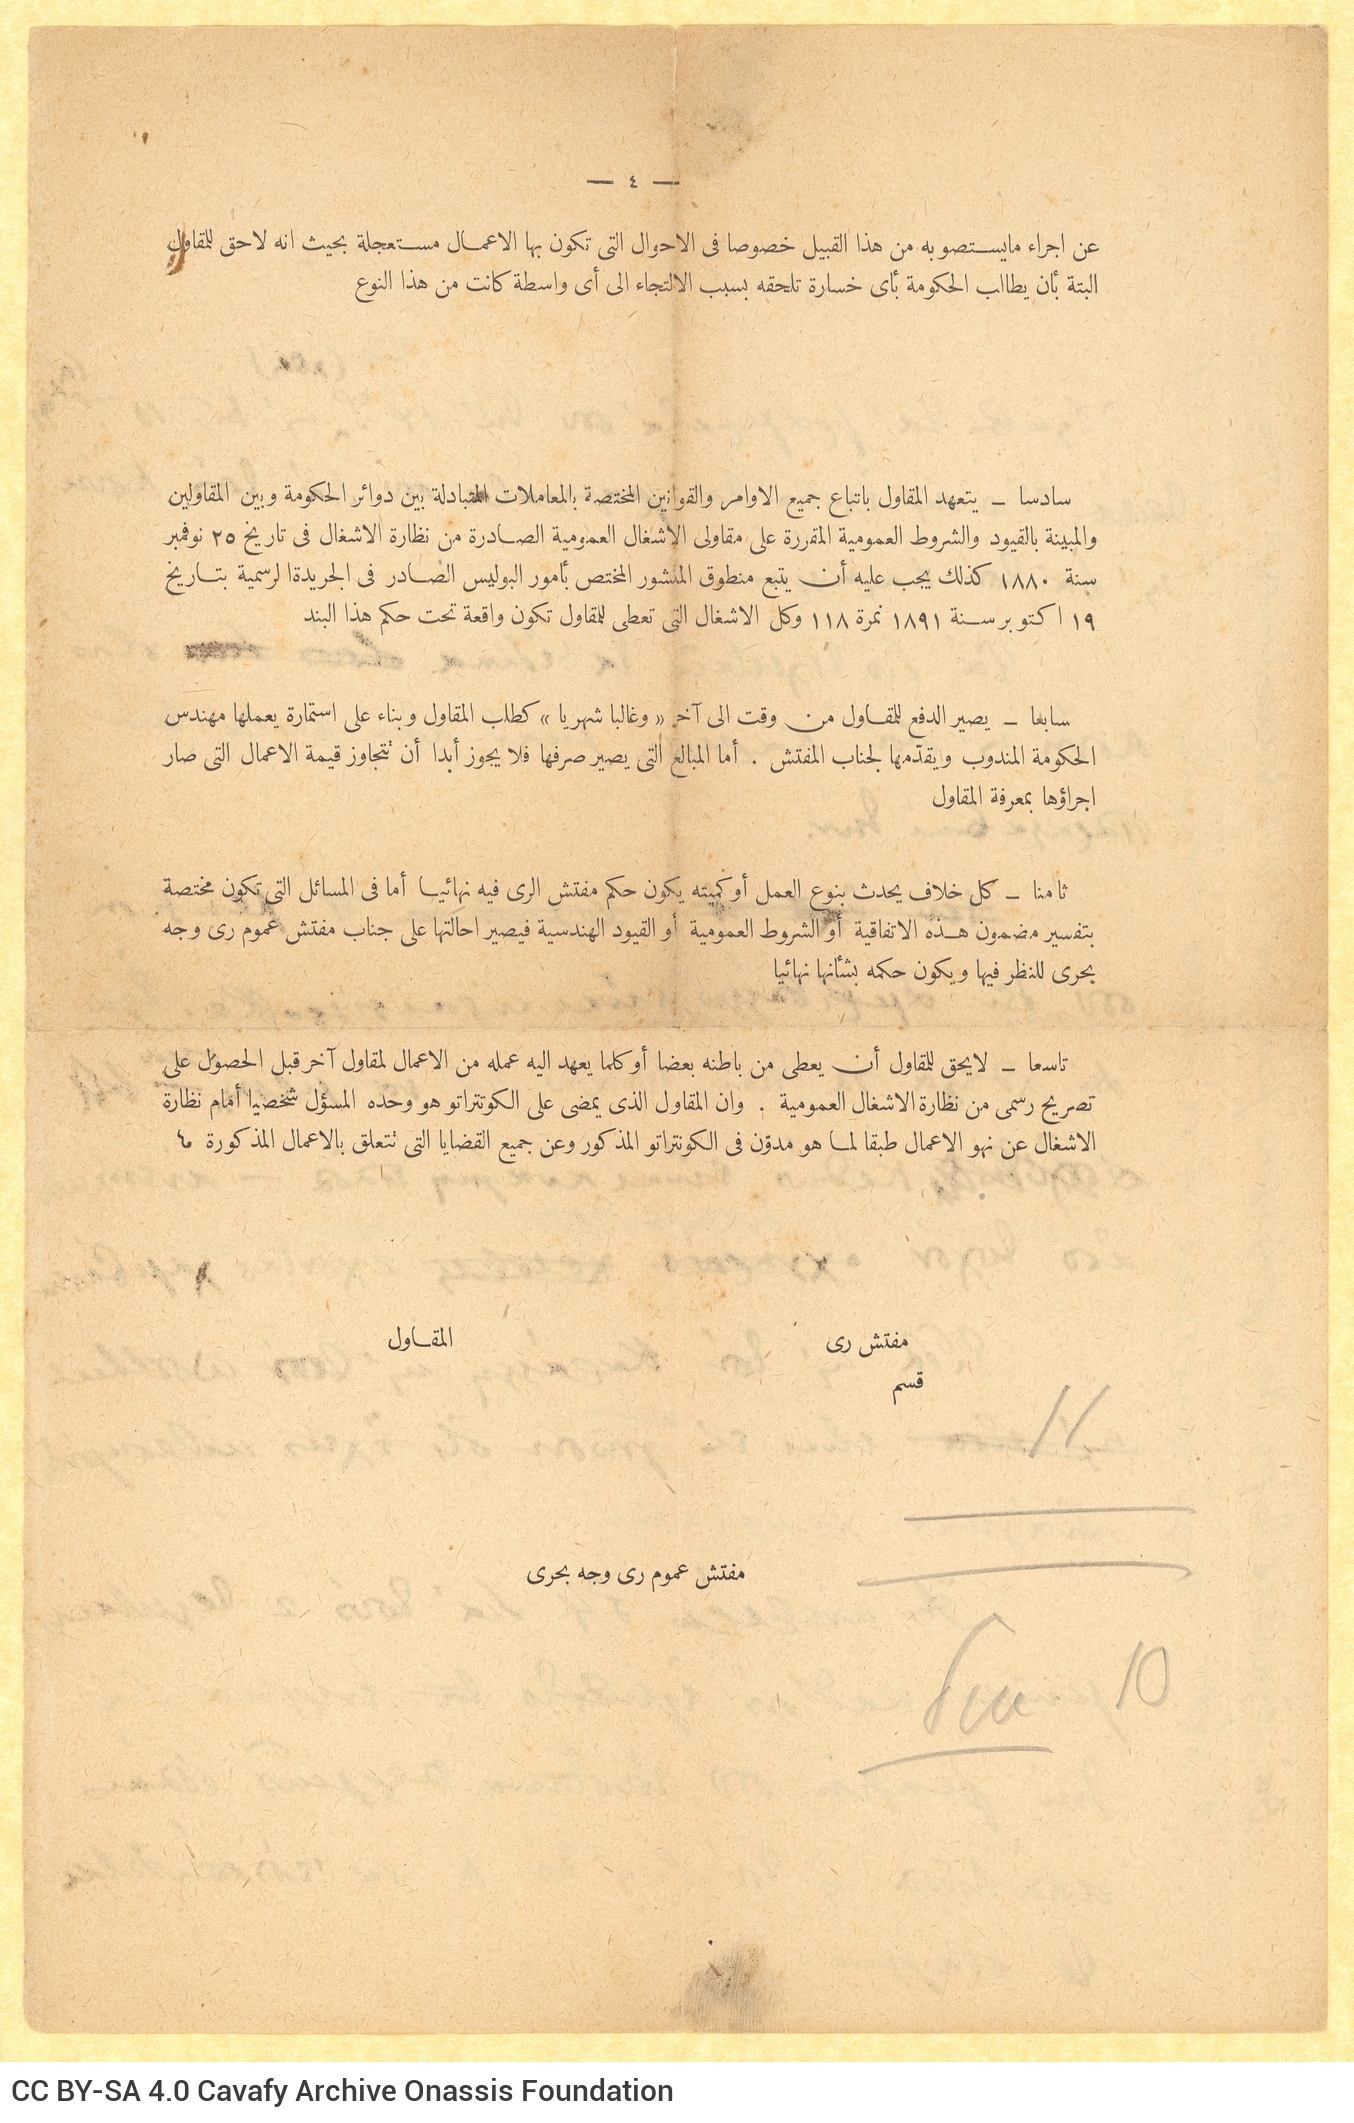 — ٤ —
عن اجراء مايستصوبه من هذا القبيل خصوصا فى الاحوال التى تكون بها الاعمال مستعجلة بحيث انه لاحق للمقاول
البتة بأن يطالب الحكومة بأى خسارة تلحقه بسبب الالتجاء الى أى واسطة كانت من هذا النوع
سادسا — يتعهد المقاول باتباع جميع الاوامر والقوانين المختصة بالمعاملات المتبادلة بين دوائر الحكومة وبين المقاولين
والمبينة بالقيود والشروط العمومية المقررة على مقاولى الاشغال العمومية الصادرة من نظارة الاشغال فى تاريخ ٢٥ نوفمبر
سنة ١٨٨٠ كذلك يجب عليه أن يتبع منطوق المنشور المختص بأمور البوليس الصادر فى الجريدة الرسمية بتاريخ
١٩ اكتوبر سنة ١٨٩١ نمرة ١١٨ وكل الاشغال التى تعطى للمقاول تكون واقعة تحت حكم هذا البند
سابعا — يصير الدفع للمقاول من وقت الى آخر « وغالبا شهريا » كطلب المقاول وبناء على استمارة يعملها مهندس
الحكومة المندوب ويقدّمها لجناب المفتش . أما المبالغ التى يصير صرفها فلا يجوز أبدا أن تتجاوز قيمة الاعمال التى صار
اجراؤها بمعرفة المقاول
ثامنا — كل خلاف يحدث بنوع العمل أو كميته يكون حكم مفتش الرى فيه نهائيا أما فى المسائل التى تكون مختصة
بتفسير مضمون هذه الاتفاقية أو الشروط العمومية أو القيود الهندسية فيصير احالتها على جناب مفتش عموم رى وجه
بحرى للنظر فيها ويكون حكمه بشأنها نهائيا
تاسعا — لايحق للمقاول أن يعطى من باطنه بعضا أو كلما يعهد اليه عمله من الاعمال لمقاول آخر قبل الحصول على
تصريح رسمى من نظارة الاشغال العمومية . وان المقاول الذى يمضى على الكونتراتو هو وحده المسؤل شخصيا أمام نظارة
الاشغال عن نهو الاعمال طبقا لما هو مدوّن فى الكونتراتو المذكور وعن جميع القضايا التى تتعلق بالاعمال المذكورة
مفتش رى
المقاول
قسم
مفتش عموم رى وجه بحرى
10
CC BY-SA 4.0 Cavafy Archive Onassis Foundation